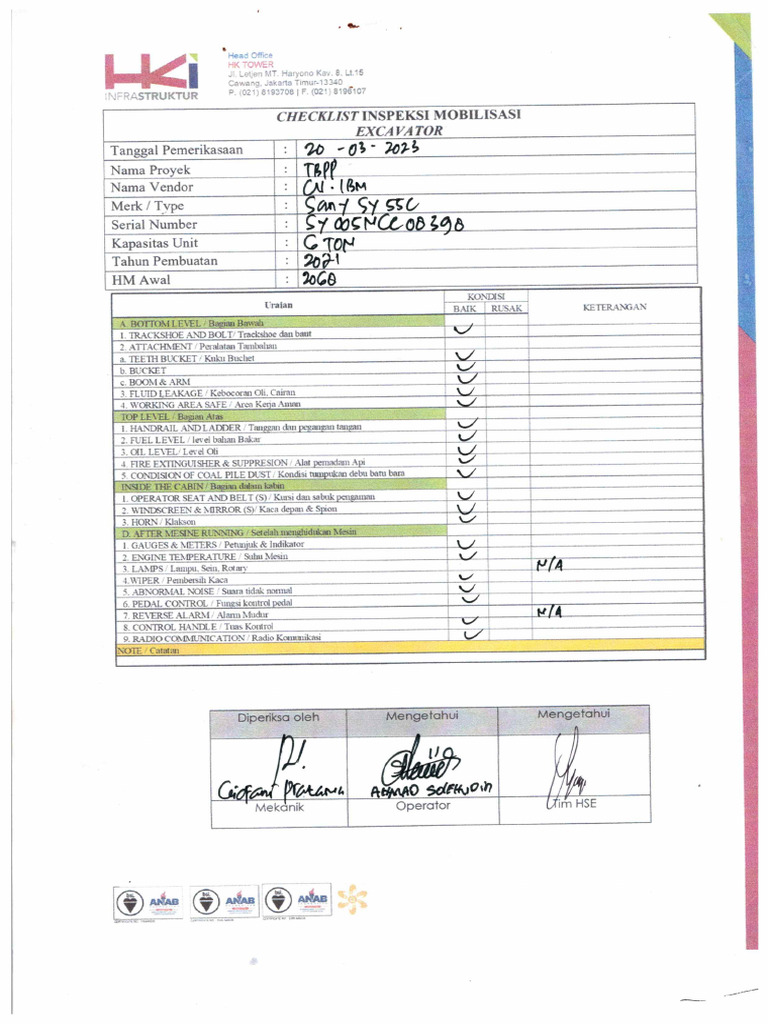 HKi
INFRASTRUKTUR
Head Office
HK TOWER
Jl. Letjen MT. Haryono Kav. 8. Lt.15
Cawang, Jakarta Timur-13340
P. (021) 8193708 | F. (021) 8196107
CHECKLIST INSPEKSI MOBILISASI
EXCAVATOR
Tanggal Pemerikasaan : 20 - 03 - 2023
Nama Proyek : TBPP
Nama Vendor : CV. IBM
Merk / Type : SANY SY 55C
Serial Number : SY005NCC08398
Kapasitas Unit : 6 TON
Tahun Pembuatan : 2021
HM Awal : 2068
Uraian KONDISI KETERANGAN
BAIK RUSAK
A. BOTTOM LEVEL / Bagian Bawah
1. TRACKSHOE AND BOLT/ Trackshoe dan baut
2. ATTACHMENT / Peralatan Tambahan
a. TEETH BUCKET / Kuku Buchet
b. BUCKET
c. BOOM & ARM
3. FLUID LEAKAGE / Kebocoran Oli, Cairan
4. WORKING AREA SAFE / Area Kerja Aman
TOP LEVEL / Bagian Atas
1. HANDRAIL AND LADDER / Tanggan dan pegangan tangan
2. FUEL LEVEL / level bahan Bakar
3. OIL LEVEL/ Level Oli
4. FIRE EXTINGUISHER & SUPPRESION / Alat pemadam Api
5. CONDISION OF COAL PILE DUST / Kondisi tumpukan debu batu bara
INSIDE THE CABIN / Bagian dalam kabin
1. OPERATOR SEAT AND BELT (S) / Kursi dan sabuk pengaman
2. WINDSCREEN & MIRROR (S)/ Kaca depan & Spion
3. HORN / Klakson
D. AFTER MESINE RUNNING / Setelah menghidukan Mesin
1. GAUGES & METERS / Petunjuk & Indikator
2. ENGINE TEMPERATURE / Suhu Mesin
3. LAMPS / Lampu, Sein, Rotary N/A
4.WIPER / Pembersih Kaca
5. ABNORMAL NOISE / Suara tidak normal
6. PEDAL CONTROL / Fungsi kontrol pedal
7. REVERSE ALARM / Alarm Mudur N/A
8. CONTROL HANDLE / Tuas Kontrol
9. RADIO COMMUNICATION / Radio Komunikasi
NOTE / Catatan
Diperiksa oleh Mengetahui Mengetahui
Giofani Pratama AHMAD SOLEHUDIN
Mekanik Operator Tim HSE
ANAB ANAB ANAB